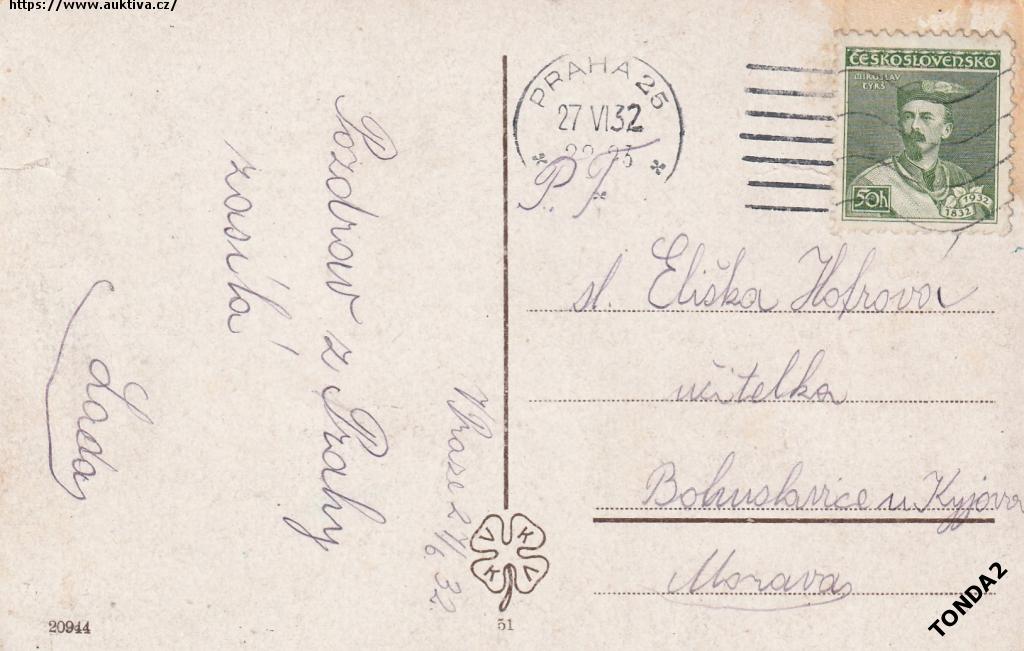 https://www.auktiva.cz/
Pozdrav z Prahy
zasílá
Lada
V Praze 27/6. 32.
PRAHA 25
27 VI 32
P. F.
ČESKOSLOVENSKO
MIROSLAV
TYRŠ
50h
1832 1932
sl. Eliška Hofrova
učitelka
Bohuslavice u Kyjova
Morava
V K K V
20944
51
TONDA2